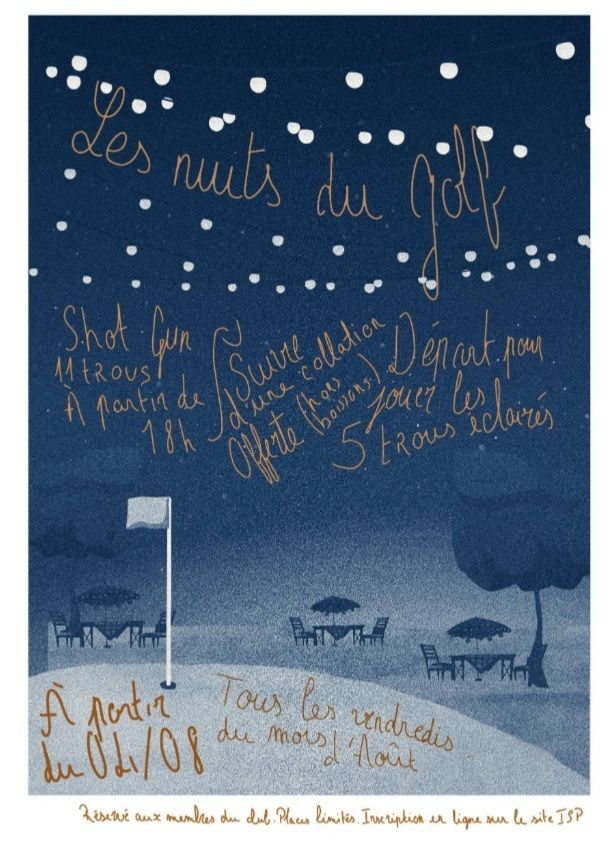 Les nuits du golf
Shot Gun
11 trous
À partir de
18h
Suivie
d'une collation
offerte (hors
boissons)
Départ pour
jouer les
5 trous éclairés
À partir
du 04/08
Tous les vendredis
du mois
d'Août
Réservé aux membres du club. Places limités. Inscription en ligne sur le site ISP